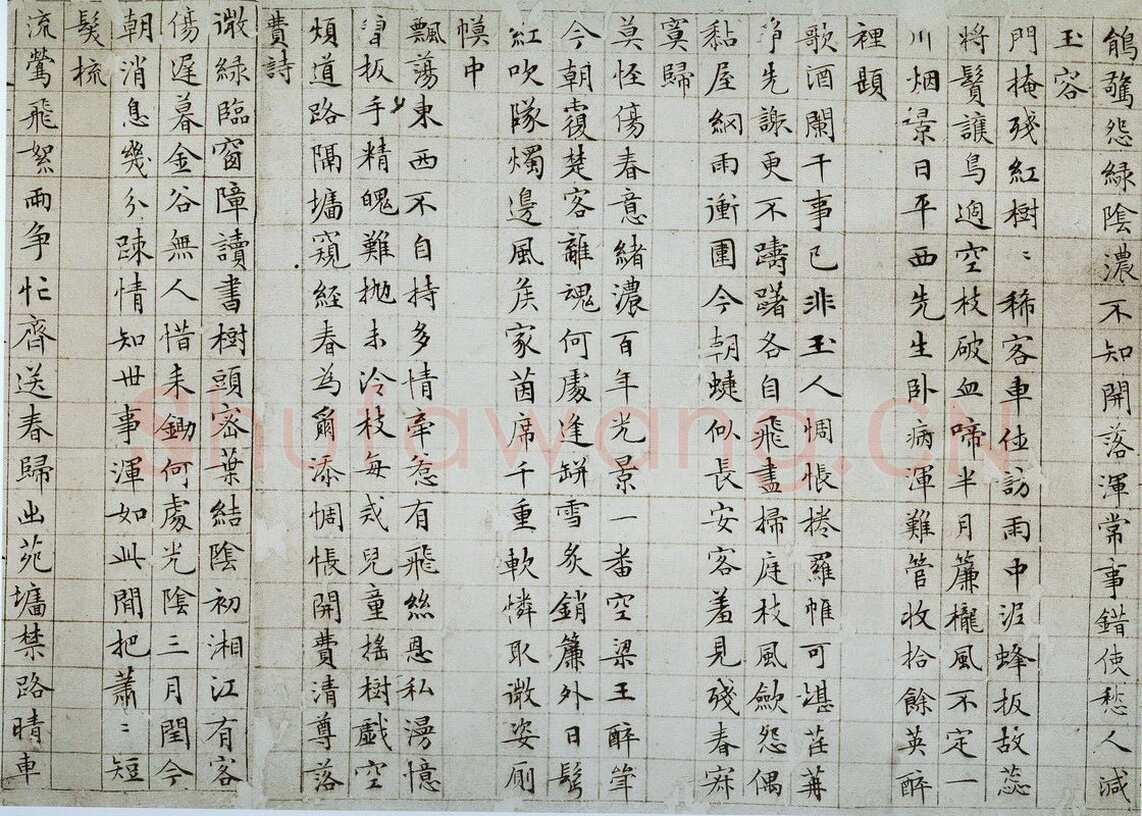 鵑驚怨綠陰濃不知開落渾常事錯使愁人減
玉容
門掩殘紅樹〻稀客車休訪雨中泥蜂扳故蕊
將鬚護鳥過空枝破血啼半月簾櫳風不定一
川烟景日平西先生卧病渾難管收拾餘英醉
裡題
歌酒闌干事已非玉人惆悵捲羅帷可堪荏苒
爭先謝更不躊躇各自飛盡掃庭枝風歛怨偶
黏屋網雨衝圍今朝蜨似長安客羞見殘春寂
寞歸
莫怪傷春意緒濃百年光景一番空梁王醉聳
今朝覆楚客離魂何處逢缾雪炙銷簾外日髩
紅吹隊燭邊風矦家茵席千重軟憐取微姿厠
幙中
飄蕩東西不自持多情牽惹有飛絲恩私漫憶
曾扳手精魄難拋未冷枝每戒兒童搖樹戲空
煩道路隔墻窺経春為爾添惆悵開費清尊落
費詩
微綠臨窗障讀書樹頭密葉結陰初湘江有客
傷遲暮金谷無人惜未鋤何處光陰三月閏今
朝消息幾分踈情知世事渾如此閒把蕭〻短
髮梳
流鶯飛絮兩爭忙齊送春歸出苑墻禁路晴車
Shufawang.CN